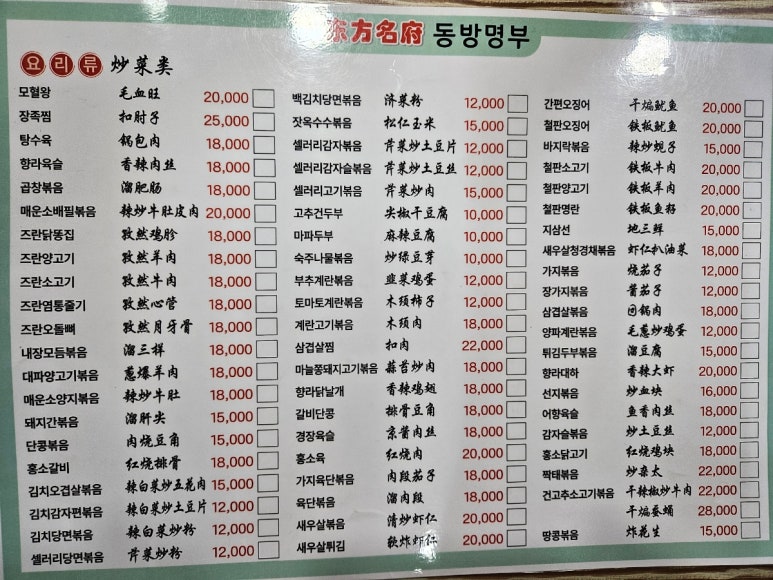 东方名府 동방명부
요리류 炒菜类
모혈왕 毛血旺 20,000
장족찜 扣肘子 25,000
탕수육 锅包肉 18,000
향라육슬 香辣肉丝 18,000
곱창볶음 溜肥肠 18,000
매운소배필볶음 辣炒牛肚皮肉 20,000
즈란닭똥집 孜然鸡胗 18,000
즈란양고기 孜然羊肉 18,000
즈란소고기 孜然牛肉 18,000
즈란염통줄기 孜然心管 18,000
즈란오돌뼈 孜然月牙骨 18,000
내장모듬볶음 溜三样 18,000
대파양고기볶음 葱爆羊肉 18,000
매운소양지볶음 辣炒牛肚 18,000
돼지간볶음 溜肝尖 15,000
단콩볶음 肉烧豆角 15,000
홍소갈비 红烧排骨 18,000
김치오겹살볶음 辣白菜炒五花肉 15,000
김치감자편볶음 辣白菜炒土豆片 12,000
김치당면볶음 辣白菜炒粉 12,000
셀러리당면볶음 芹菜炒粉 12,000
백김치당면볶음 济菜粉 12,000
잣옥수수볶음 松仁玉米 15,000
셀러리감자볶음 芹菜炒土豆片 12,000
셀러리감자슬볶음 芹菜炒土豆丝 12,000
셀러리고기볶음 芹菜炒肉 15,000
고추건두부 尖椒干豆腐 10,000
마파두부 麻辣豆腐 10,000
숙주나물볶음 炒绿豆芽 10,000
부추계란볶음 韭菜鸡蛋 12,000
토마토계란볶음 木须柿子 12,000
계란고기볶음 木须肉 18,000
삼겹살찜 扣肉 22,000
마늘쫑돼지고기볶음 蒜苔炒肉 18,000
향라닭날개 香辣鸡翅 18,000
갈비단콩 排骨豆角 18,000
경장육슬 京酱肉丝 18,000
홍소육 红烧肉 20,000
가지육단볶음 肉段茄子 18,000
육단볶음 溜肉段 18,000
새우살볶음 清炒虾仁 20,000
새우살튀김 软炸虾仁 20,000
간편오징어 干煸鱿鱼 20,000
철판오징어 铁板鱿鱼 20,000
바지락볶음 辣炒蚬子 15,000
철판소고기 铁板牛肉 20,000
철판양고기 铁板羊肉 20,000
철판명란 铁板鱼籽 20,000
지삼선 地三鲜 15,000
새우살청경채볶음 虾仁扒油菜 18,000
가지볶음 烧茄子 12,000
장가지볶음 酱茄子 12,000
삼겹살볶음 回锅肉 18,000
양파계란볶음 毛葱炒鸡蛋 12,000
튀김두부볶음 溜豆腐 15,000
향라대하 香辣大虾 20,000
선지볶음 炒血块 16,000
어향육슬 鱼香肉丝 18,000
감자슬볶음 炒土豆丝 12,000
홍소닭고기 红烧鸡块 18,000
짝태볶음 炒杂太 22,000
건고추소고기볶음 干辣椒炒牛肉 22,000
干煸蚕蛹 28,000
땅콩볶음 炸花生 15,000